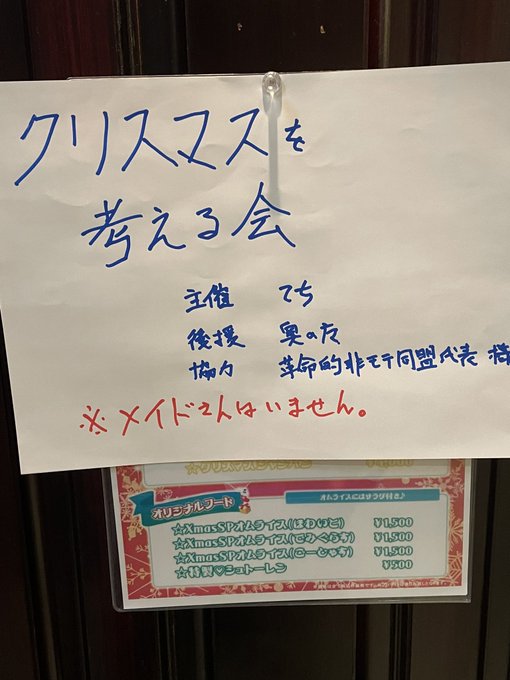 クリスマスを
考える会
主催 てち
後援 奥の方
協力 革命的非モテ同盟代表 様
※メイドさんはいません。
☆クリスマスシャンパン
オリジナルフード
オムライスにはサラダ付き♪
☆XmasSPオムライス(ほわいと) ¥1,500
☆XmasSPオムライス(でみぐら考) ¥1,500
☆XmasSPオムライス(こーしゃ考) ¥1,500
☆特製♡シュトーレン ¥500